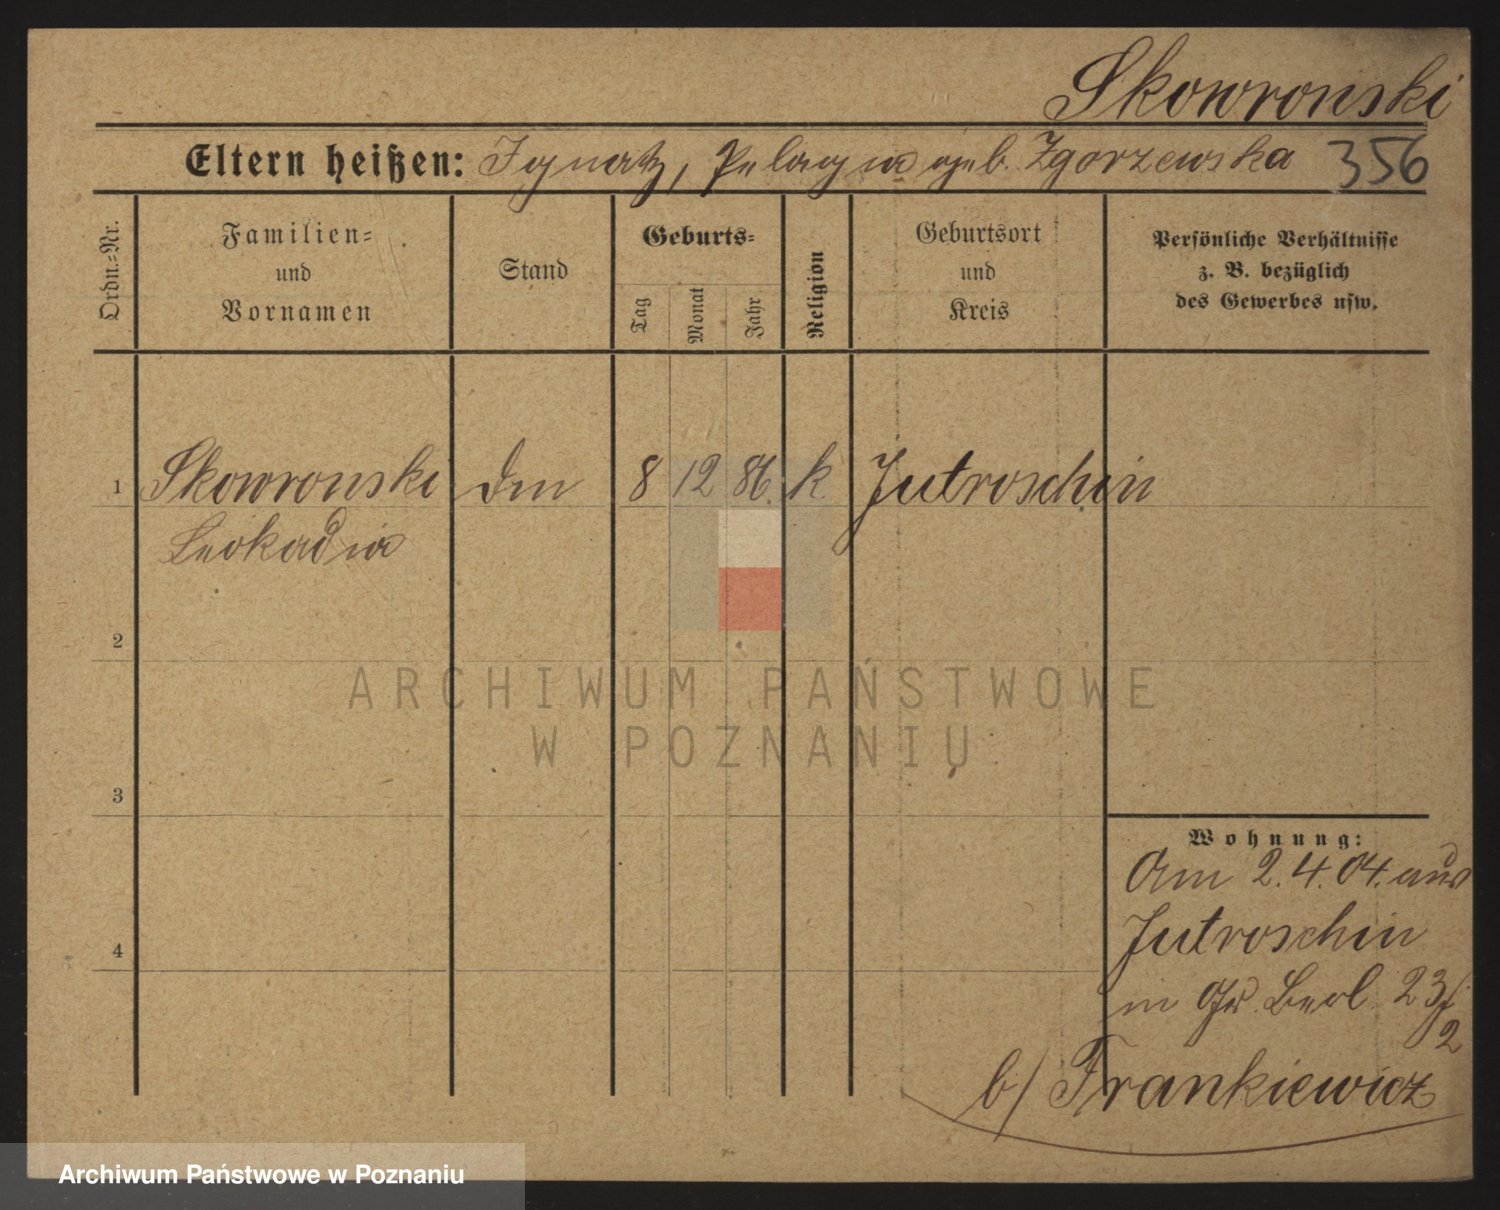 Skowronski
Eltern heißen: Ignatz, Pelagia geb. Zgorzewska 356
Ordn.-Nr.
Familien-
und
Vornamen
Stand
Geburts-
Tag
Monat
Jahr
Religion
Geburtsort
und
Kreis
Persönliche Verhältnisse
z. B. bezüglich
des Gewerbes usw.
1 Skowronski 8 12 86. k. Jutroschin
Leokadia
2
ARCHIWUM PAŃSTWOWE
W POZNANIU
3
4
Wohnung:
Am 2.4.04. aus
Jutroschin
in Gr. Berl. 23/
2
b/ Frankiewicz
Archiwum Państwowe w Poznaniu